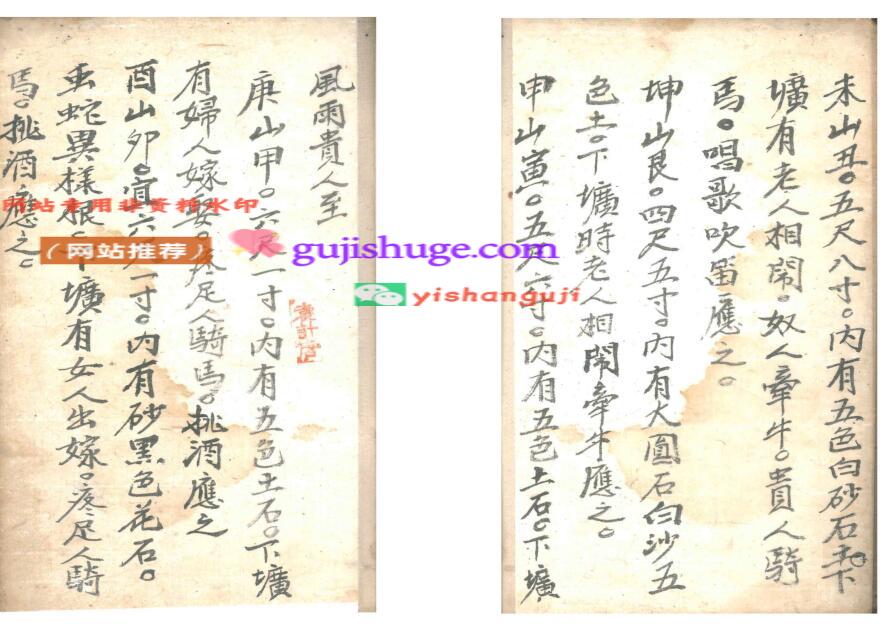 未山丑。五尺八寸。内有五色白砂石土下
壙有老人相鬧。奴人牽牛。貴人騎
馬。唱歌吹笛應之。
坤山艮。四尺五寸。内有大圓石白沙五
色土。下壙時老人相鬧牽牛應之。
申山寅。五尺六寸。内有五色土石。下壙
風雨貴人至
庚山甲。六尺一寸。内有五色土石。下壙
有婦人嫁娶。足人騎馬。挑酒應之
酉山卯。宜六一寸。内有砂黑色花石。
虫蛇異樣根。下壙有女人出嫁。疼足人騎
馬。挑酒應之。
网站专用非资料水印
（网站推荐）
gujishuge.com
yishanguji